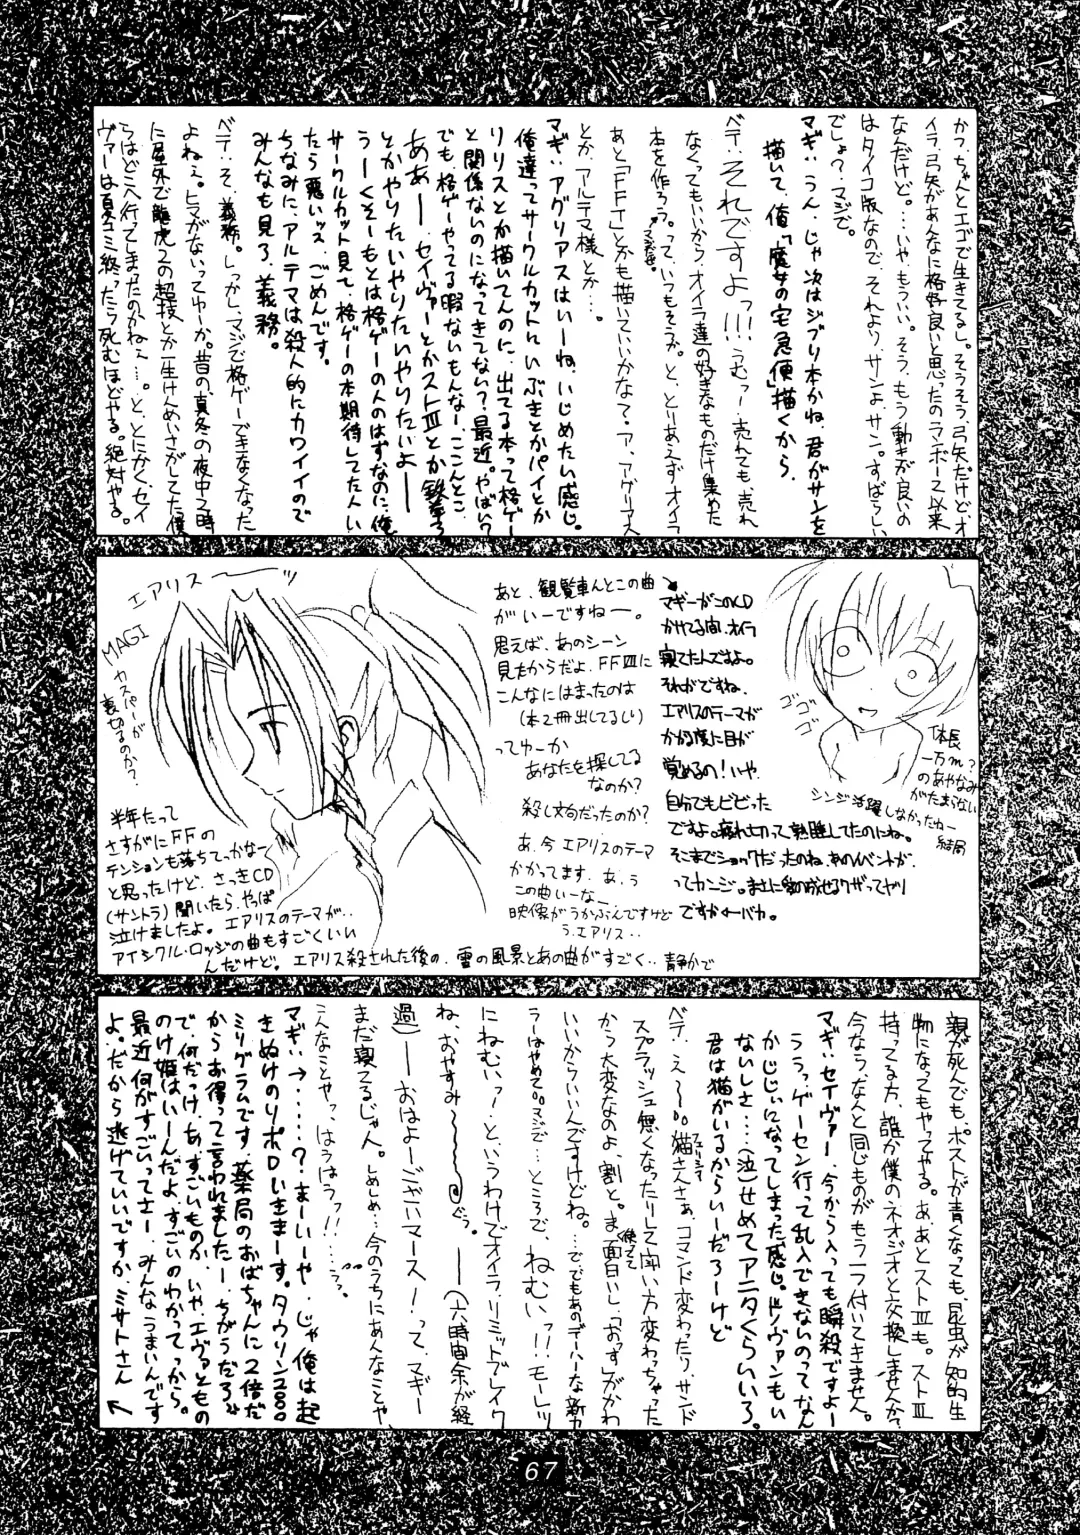 かっ、ちゃんとエゴで生きてるし。そうそう、弓矢だけど、オ
イラ、弓矢があんなに格好良いと思ったのランボー2以来
なんだけど。…いや、もういい。そう、もう動きが良いの
はタイコ版なので、それより、サンよ、サン。すばらしい
でしょ?マジで。
マギぃうん、じゃ次はジブリ本かね、君がサンを
描いて、俺「魔女の宅急便」描くから、
ベテ:それですよっ!!!うむっー、売れても、売れ
なくってもいいからオイラ達の好きなものだけ集めた
本を作ろう。って、いつもそうだ。と、とーあえずオイラ
あと「FFT」とかも描いていいかなァ?ア、アグリアス
とか、アルテマ様とか…。
マギぃアグリアスはいーね、いじめたい感じ。
俺達ってサークルカットにいぶきとかパイとか
リリスとか描いてんのに、出てる本って格ゲー
と関係ないのになってきてない?最近。やばい?
でも、格ゲーやってる暇ないもんなー、ここんとこ
ああー、セイヴァーとかストⅢとか鉄拳3
とかやりたいやりたいやりたいよー
うーくそーもとは格ゲーの人のはずなのに、俺
サークルカット見て、格ゲーの本期待してた人い
たら悪いッス、ごめんです。
ちなみに、アルテマは殺人的にカワイイので
みんなも見ろ、義務。
ベテ:そ、義務。しっかし、マジで格ゲーできなくなった
よねぇ。ヒマがないってゆーか。昔の、真冬の夜中2時
に屋外で龍虎2の超技とか一生けんめいさがしてた僕
らはどこへ行ってしまったのかねぇ…。と、とにかく、セイ
ヴァーは夏コミ終ったら死むほどやる。絶対やる。
エアリス〜ッ
MAGI
カスパーが
裏切るのか?
半年たって
さすがにFFの
テンションも落ちてっかなー
と思ったけど、さっきCD
(サントラ)聞いたら、やっぱ
泣けましたよ。エアリスのテーマが‥
アイシクル・ロッジの曲もすごくいい
んだけど。エアリス殺された後の、雪の風景とあの曲がすごく‥静かで
あと、観覧車んとこの曲
がいーですねー。
思えば、あのシーン
見たからだよ、FFⅦに
こんなにはまったのは
(本2冊出してるし)
ってゆーか
あなたを探してる
なのか?
殺し文句だったのか?
あ、今エアリスのテーマ
かかってます、あ、う
この曲いーなー
映像がうかぶんですけど
う、エアリス‥
マギーがこのCD
かけてる間、オイラ
寝てたんですよ。
それがですね、
エアリスのテーマが
かかる度に目が
覚めるの!いや、
自分でもビビッた
ですよ。疲れ切って熟睡してたのにね。
そこまでショックだったのね、あのイベントが、
ってカンジ。まさに
ですか←バカ。
ゴゴゴゴ
体長
一万m?
のあやなみ
がたまらない
シンジ活躍しなかったねー
結局
親が死んでも、ポストが青くなっても、昆虫が知的生
物になってもやってやる。ああとストⅢも。ストⅢ
持ってる方、誰か僕のネオジオと交換しませんか?
今ならなんと同じものがもう一つ付いてきません。
マギぃセイヴァー、今から入っても瞬殺ですよー
ううっゲーセン行って乱入できないのってなん
かじじぃになってしまった感じ。ドノヴァンもい
ないしさ…(泣)せめてアニタくらいいろ。
君は猫がいるからいーだろーけど
ベテ:え〜。猫さんさぁ、コマンド変わったり、サンド
スプラッシュ無くなったりして闘い方変わっちゃった
から大変なのよ、割と。ま、面白いし、「おっす」がかわ
いいからいいんですけどね。…でもあのデーハーな新力
ラーはやめて。マジで…ところで、ねむいっ!!!モーレツ
にねむいっ!。というわけでオイラ、リミットブレイク
ね、おやすみ〜ぐぅ。―(六時間余が経
過)―おはよーございマース!って、マギー
まだ寝てるじゃん。しめしめ…今のうちにあんなことや、
こんなことやっ、はうはうっ!!…う。
マギぃ→‥‥‥?まーいーや、じゃ俺は起
きぬけのリポDいきまーす。タウリン2000
ミリグラムです、薬局のおばちゃんに「2倍だ
からお得」って言われましたー、ちがうだろ。
で、何だっけ、あ、すごいものか、いや、エヴァともの
のけ姫はいーんだよ、すごいのわかってっから。
最近、何がすごいってさー、みんなうまいんです
よ。だから逃げていいですか、ミサトさん
67